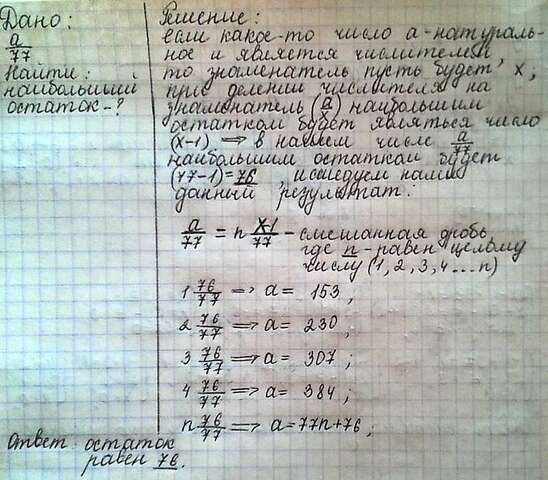 Дано:
a/77
Найти:
наибольший
остаток-?
Решение:
если какое-то число a-натураль-
ное и является числителем
то знаменатель пусть будет x,
при делении числителя на
знаменатель (a/x) наибольшим
остатком будет являться число
(x-1) ⇒ в нашем числе a/77
наибольшим остатком будет
(77-1)=76, исследуем нами
данный результат:
a/77 = n x-1/77 - смешанная дробь,
где n-равен целому
числу (1,2,3,4...n)
1 76/77 ⇒ a= 153;
2 76/77 ⇒ a= 230;
3 76/77 ⇒ a= 307;
4 76/77 ⇒ a= 384;
n 76/77 ⇒ a=77n+76;
Ответ: остаток
равен 76.